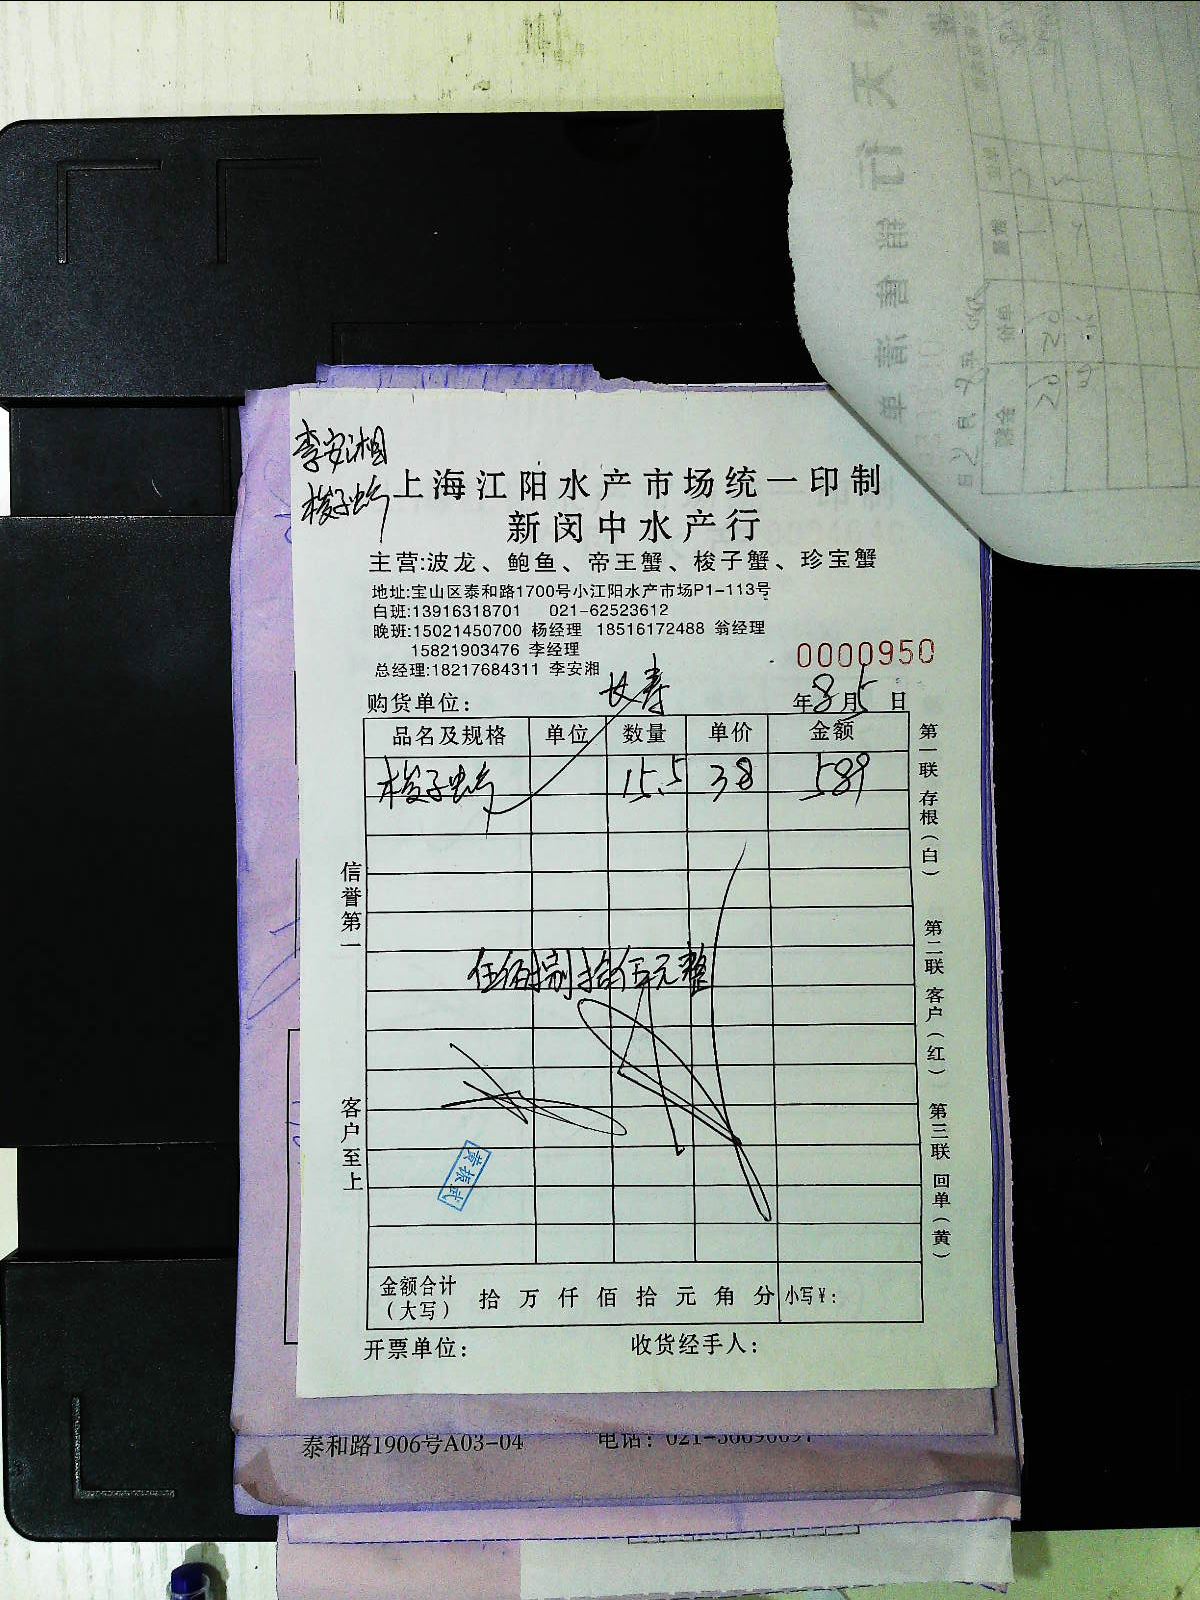 李安湘
梭子蟹
上海江阳水产市场统一印制
新闵中水产行
主营:波龙、鲍鱼、帝王蟹、梭子蟹、珍宝蟹
地址:宝山区泰和路1700号小江阳水产市场P1-113号
白班:13916318701 021-62523612
晚班:15021450700 杨经理 18516172488 翁经理
15821903476 李经理
总经理:18217684311 李安湘
0000950
购货单位: 长寿 年8月5日
品名及规格 单位 数量 单价 金额
梭子蟹 15.5 38 589
伍佰捌拾伍元整
黄振武
金额合计(大写) 拾 万 仟 佰 拾 元 角 分 小写¥:
开票单位: 收货经手人:
信誉第一
客户至上
第一联 存根(白)
第二联 客户(红)
第三联 回单(黄)
泰和路1906号A03-04 电话: 021-